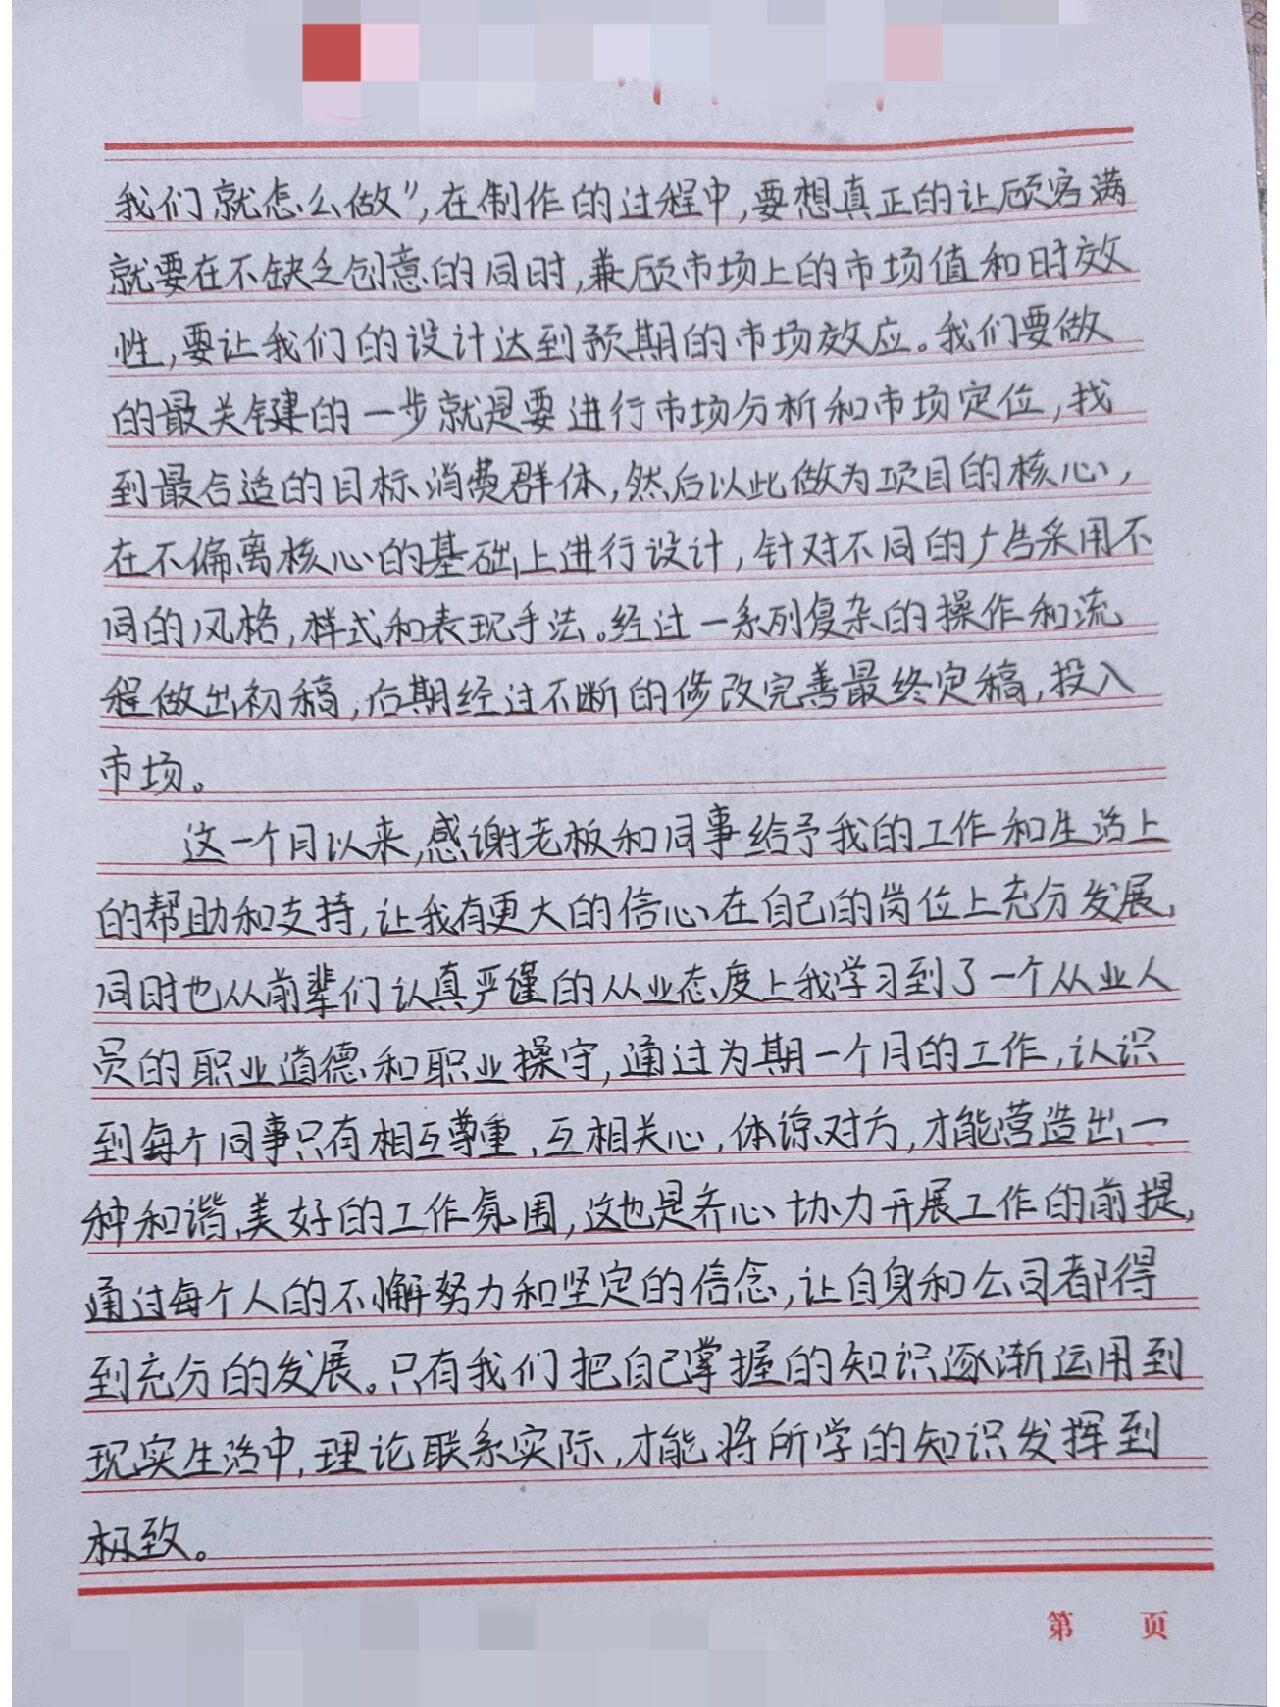 我们就怎么做”,在制作的过程中,要想真正的让顾客满
就要在不缺乏创意的同时,兼顾市场上的市场值和时效
性,要让我们的设计达到预期的市场效应。我们要做
的最关键的一步就是要进行市场分析和市场定位,找
到最合适的目标消费群体,然后以此做为项目的核心,
在不偏离核心的基础上进行设计,针对不同的广告采用不
同的风格,样式和表现手法。经过一系列复杂的操作和流
程做出初稿,后期经过不断的修改完善最终定稿,投入
市场。
这一个月以来,感谢老板和同事给予我的工作和生活上
的帮助和支持,让我有更大的信心在自己的岗位上充分发展,
同时也从前辈们认真严谨的从业态度上我学习到了一个从业人
员的职业道德和职业操守,通过为期一个月的工作,认识
到每个同事只有相互尊重、互相关心,体谅对方,才能营造出一
种和谐、美好的工作氛围,这也是齐心协力开展工作的前提,
通过每个人的不懈努力和坚定的信念,让自身和公司都得
到充分的发展。只有我们把自己掌握的知识逐渐运用到
现实生活中,理论联系实际,才能将所学的知识发挥到
极致。
第 页